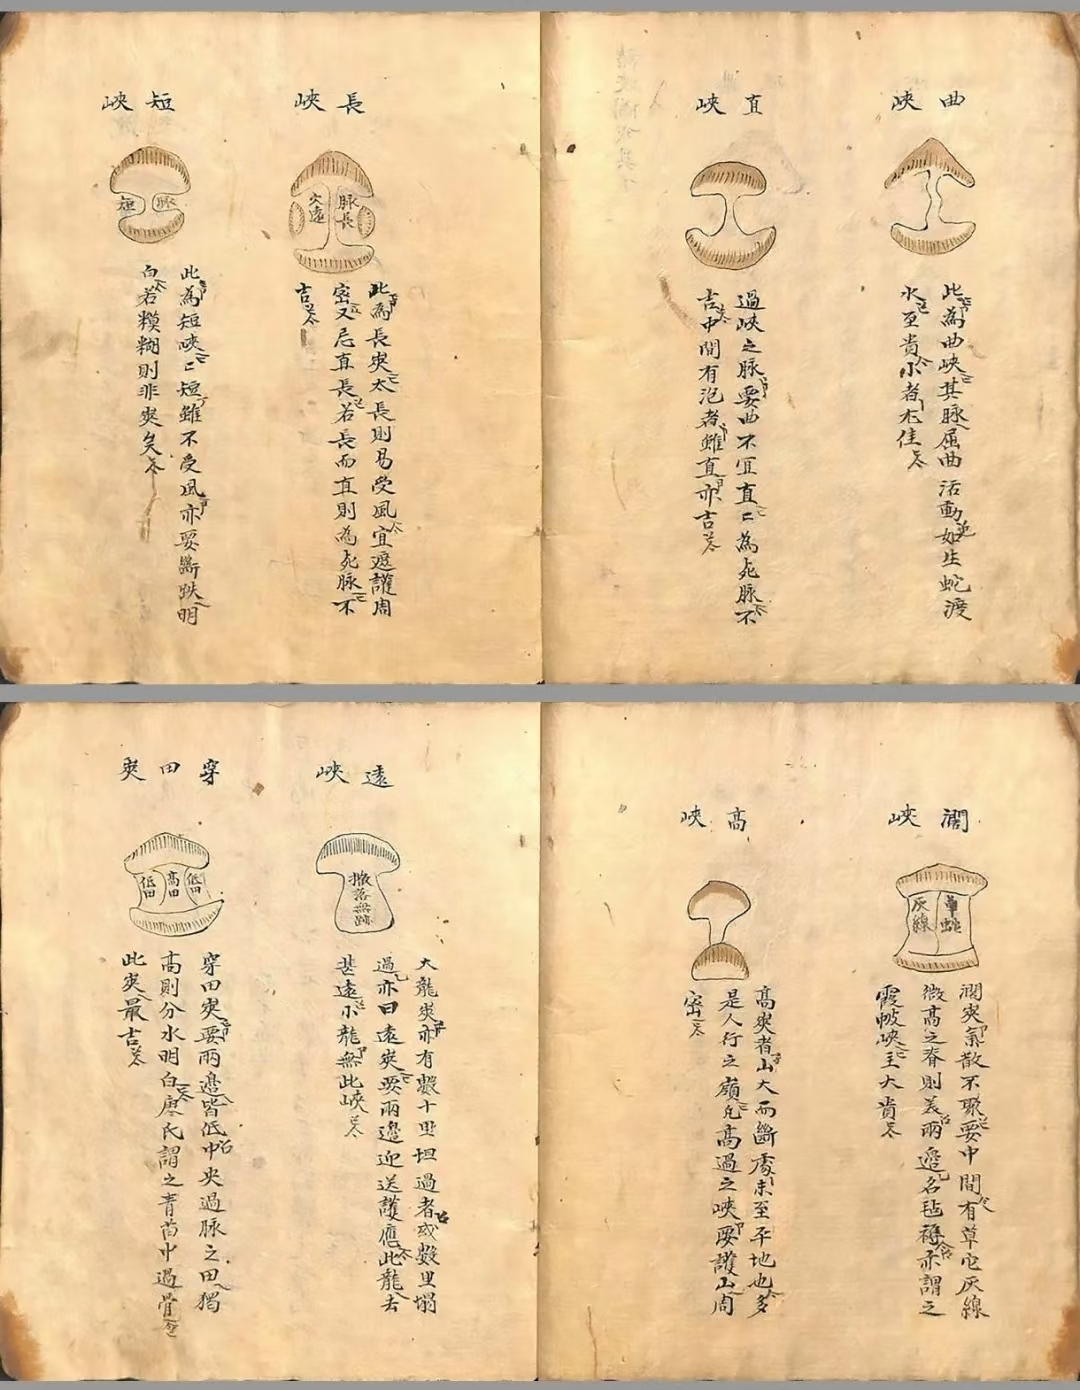 曲峽
此為曲峽其脉屈曲活動如生蛇渡
水至貴小者不佳
直峽
過峽之脉要曲不宜直〻為死脉不
吉中間有泡者雖直亦吉
長峽
脉長
穴遠
此為長夾太長則易受風宜遮護周
密又忌直長若長而直則為死脉不
吉
短峽
脉
短
此為短峽〻短雖不受風亦要斷跌明
白若糢糊則非夾矣
濶峽
草蛇
灰線
濶夾氣散不聚要中間有草它灰線
微高之脊則美兩邉名毡褥亦謂之
霞帔峽主大貴
高峽
高夾者山大而斷處未至平地也多
是人行之嶺凡高過之峽要護山周
密
遠峽
撒落無踪
大龍夾亦有數十里坦過者或數里塌
過亦曰遠夾要兩邉迎送護應此龍去
甚遠小龍無此峽
穿田夾
低田
高田
低田
穿田夾要兩邉皆低中央過脉之田獨
高則分水明白廖氏謂之青苗中過骨
此夾最吉